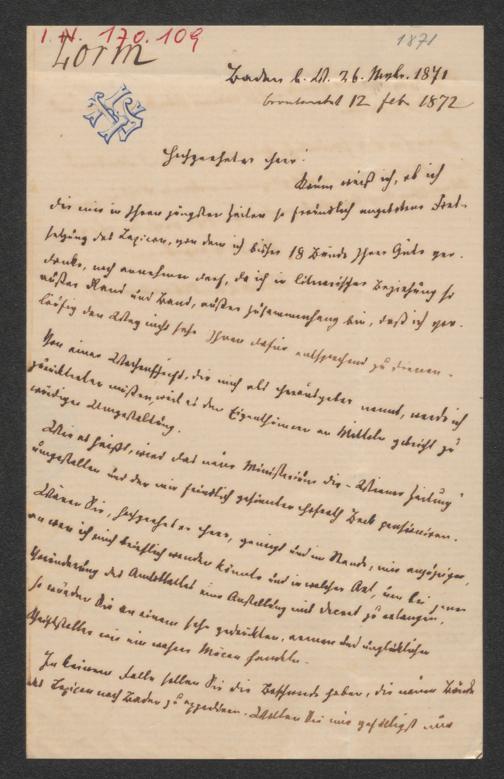 I.N. 170.109
Lorm
1871
Baden b. W. 26. 1871
beantwortet 12 Feb 1872
Hochgeehrter Herr!
Kaum weiß ich, ob ich
die mir in Ihren jüngsten Zeilen so freundlich angebotene Fort-
setzung des Lexicon, von dem ich bisher 18 Bände Ihrer Güte ver-
danke, noch annehmen darf, da ich in literarischer Beziehung so
außer Rand und Band, außer Zusammenhang bin, daß ich vor-
läufig den Weg nicht sehe Ihnen dafür entsprechend zu dienen.
Von einer Wochenschrift, die mich als Herausgeber nennt, werde ich
zurücktreten müssen, weil es den Eigenthümern an Mitteln gebricht zu
würdiger Umgestaltung.
Wie es heißt, wird das neue Ministerium die "Wiener Zeitung"
umgestalten und der mir freundlich gesinnte Hofrath Beck pensioniren.
Wären Sie, hochgeehrter Herr, geneigt und im Stande, mir anzuzeigen,
an wen ich mich brieflich wenden könnte und in welcher Art, um bei
Veränderung des Amtsblattes eine Anstellung mit Decret zu erlangen,
so würden Sie an einem sehr gedrückten, armen und unglücklichen
Schriftsteller wie ein wahrer Mäcen handeln.
In keinem Falle sollen Sie die Beschwerde haben, die neuen Bände
des Lexicon nach Baden zu expediren. Wollen Sie mir gefälligst nur